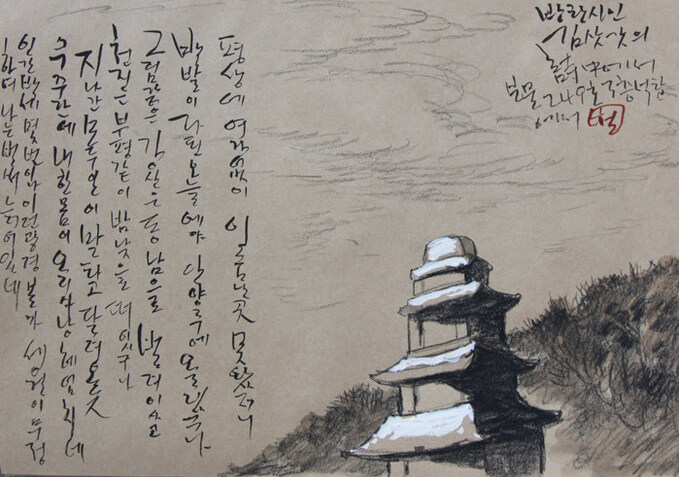 방랑시인
김삿갓의
中에서
보물 249호 3층석탑
에서
평생에 여가없어 이름난곳 못왔더니
백발이 다된 오늘에야 안양루에 올랐구나
그림같은 강산은 동남으로 벌려있고
천지는 부평같이 밤낮을 떠 있구나
지나간 모든일이 말타고 달려온듯
우주간에 내한몸이 오리마냥 헤엄치네
인간백세 몇번이나 이런광경 볼까 세월이무정
하여 나는벌써 늙어있네